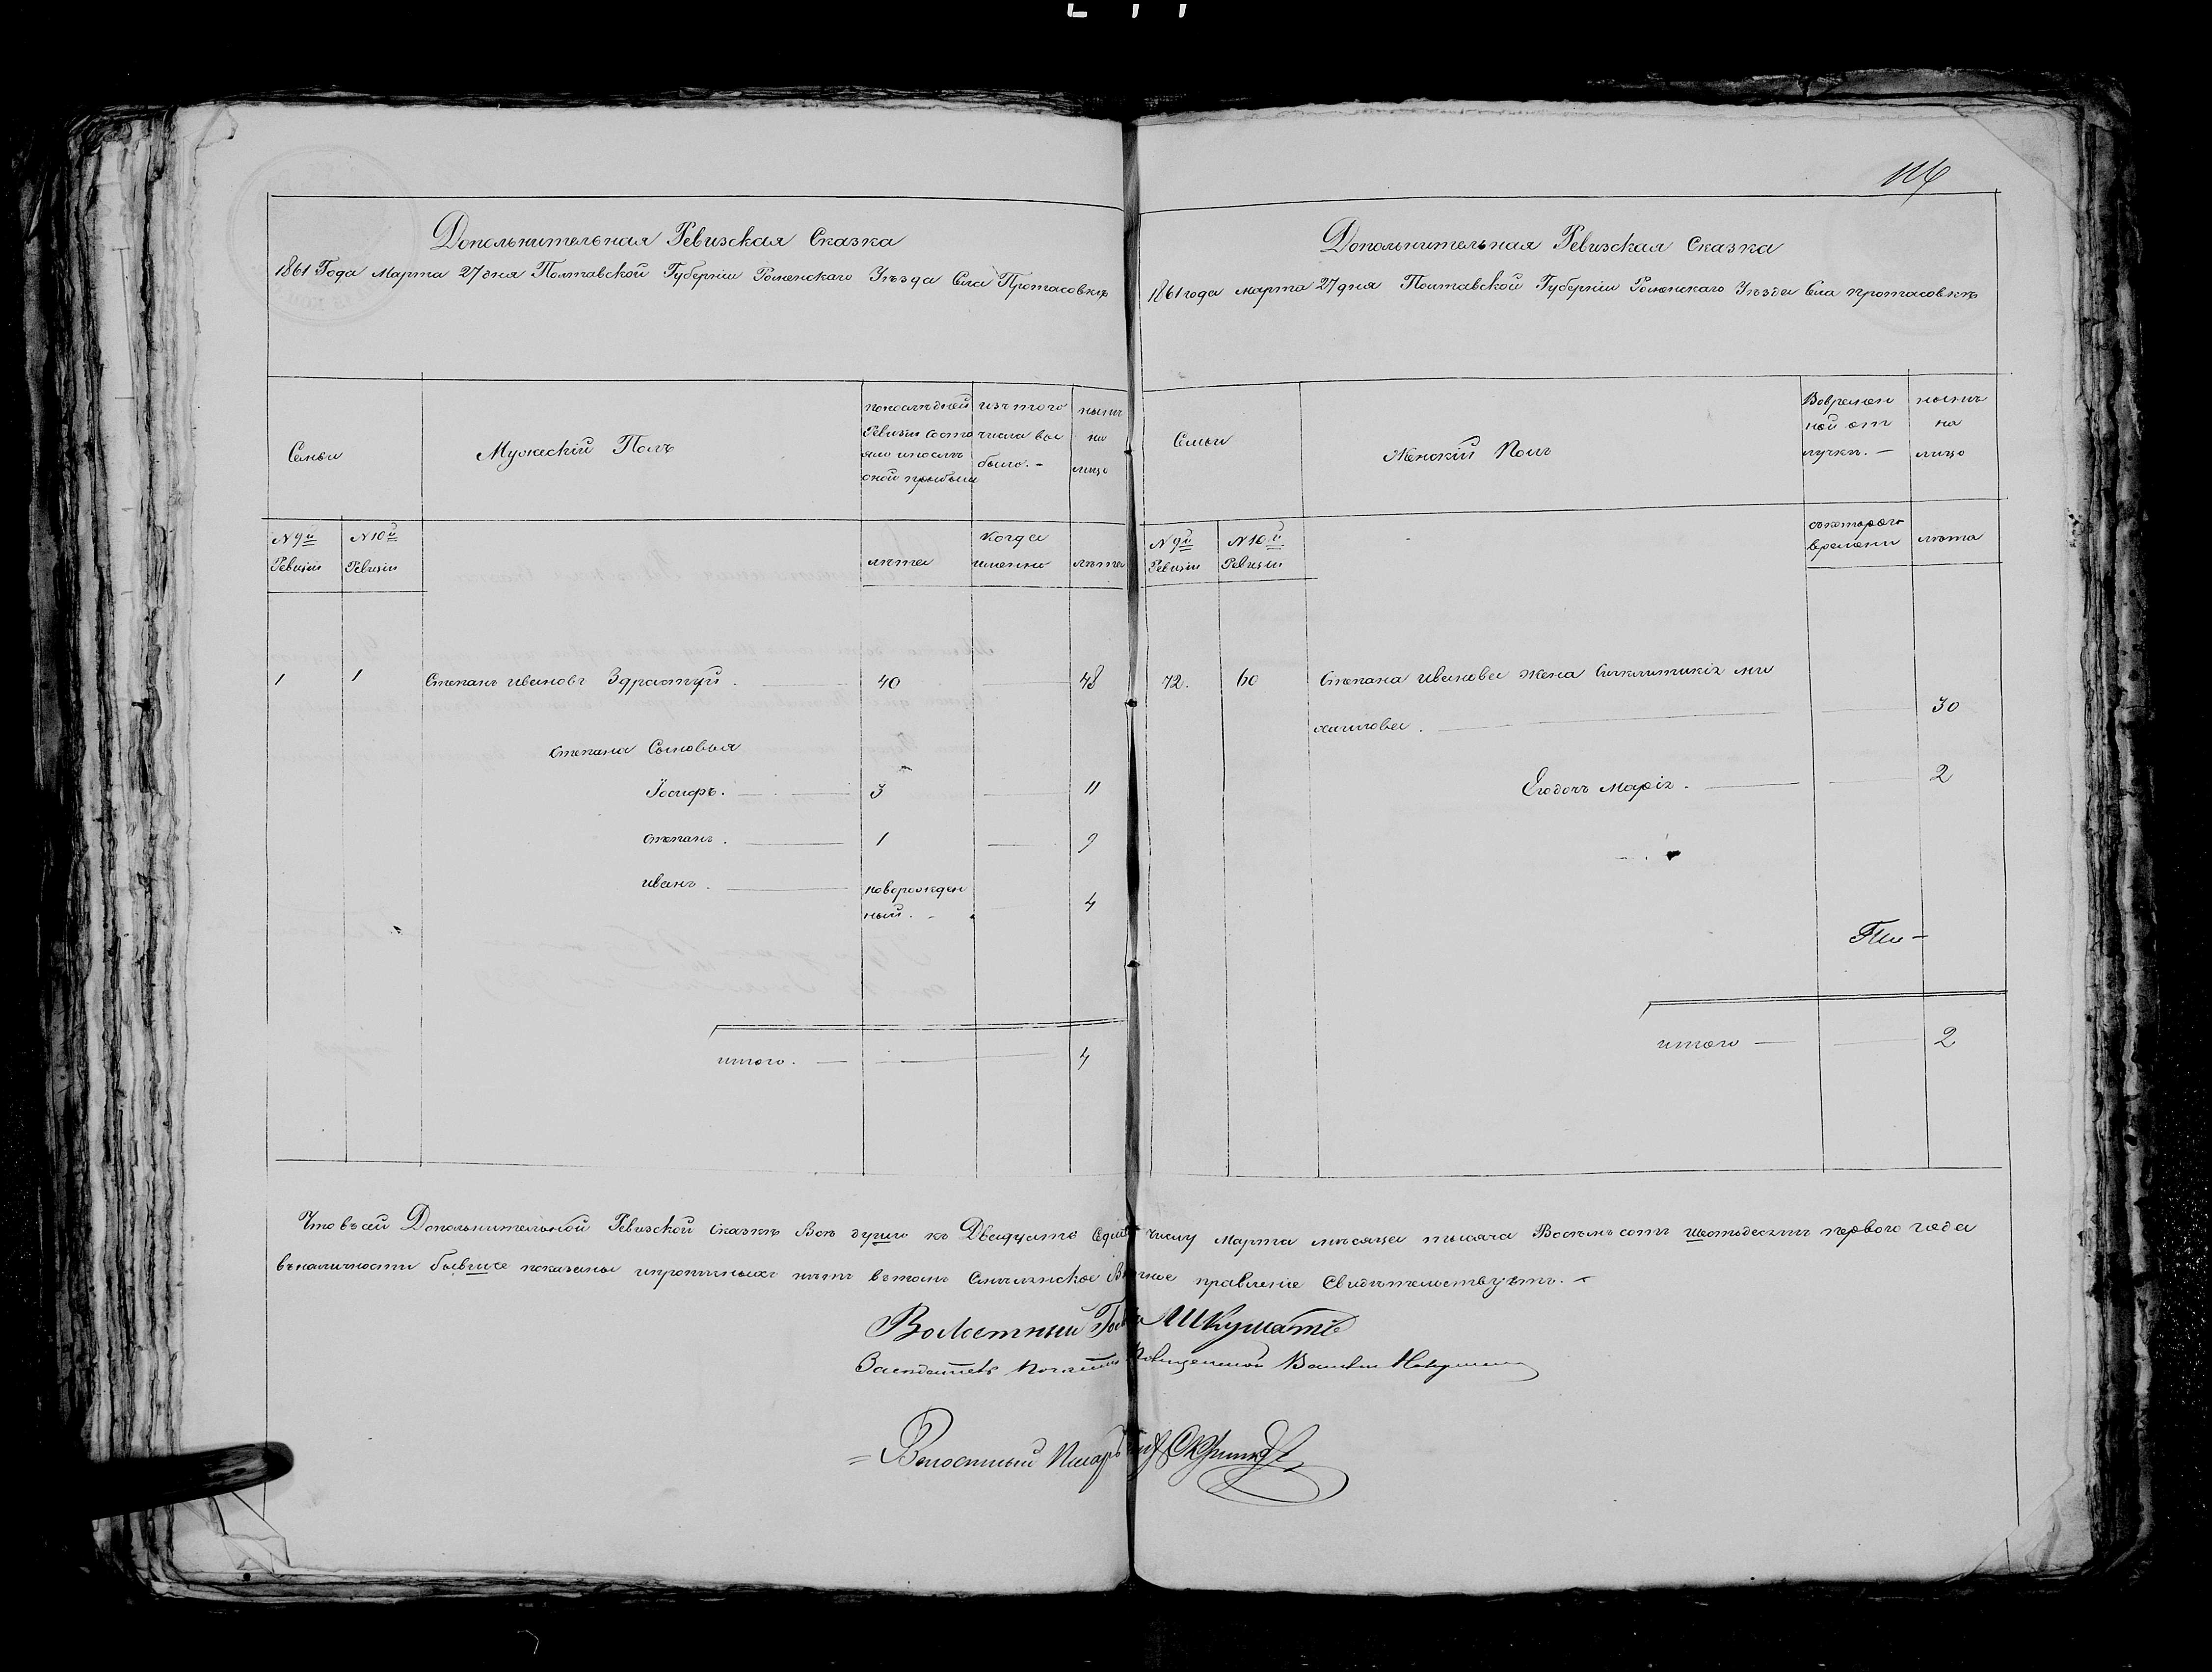 116
Дополнительная Ревизская Сказка
1861 Года Марта 27 дня Полтавской Губерніи Роменскаго Уѣзда Села Протасовкѣ
Семьи
Мужескій Полъ
попослѣдней
Ревизіи Состо
яло ипослѣ
оной прибыло
изъ того
числа вы
было. –
нынѣ
на
лицо
N 9й Ревизіи
N 10й Ревизіи
лѣта
Когда
именно
лѣта
1 1 Степанъ Ивановъ Здрастуй. 40 48
Степана Сыновья
Іосифъ. 3 11
Степанъ. 1 9
Иванъ. новорожден
ный. 4
итого. 4
Дополнительная Ревизская Сказка
1861 года марта 27 дня Полтавской Губерніи Роменскаго Уѣзда Села протасовкѣ
Семьи
Женский Полъ
Вовремен
ной от
лучкѣ. –
нынѣ
на
лицо
N 9й Ревизіи
N 10й Ревизіи
съкотораго
времени
лѣта
72. 60 Степана Иванова жена Синклитикія ми
хаилова. 30
Егодочь Марія. 2
итого 2
Что въсей Дополнительной Ревизской Сказкѣ Всѣ души къ Двадцать числу Марта мѣсяца тысяча Восемъ сотъ шестьдесятъ первого года
въналичности бывшие показаны ипрописныхъ нѣтъ вътомъ правление Свидѣтельствуетъ. –
Волостный Шкуматъ
Волостный Писарь